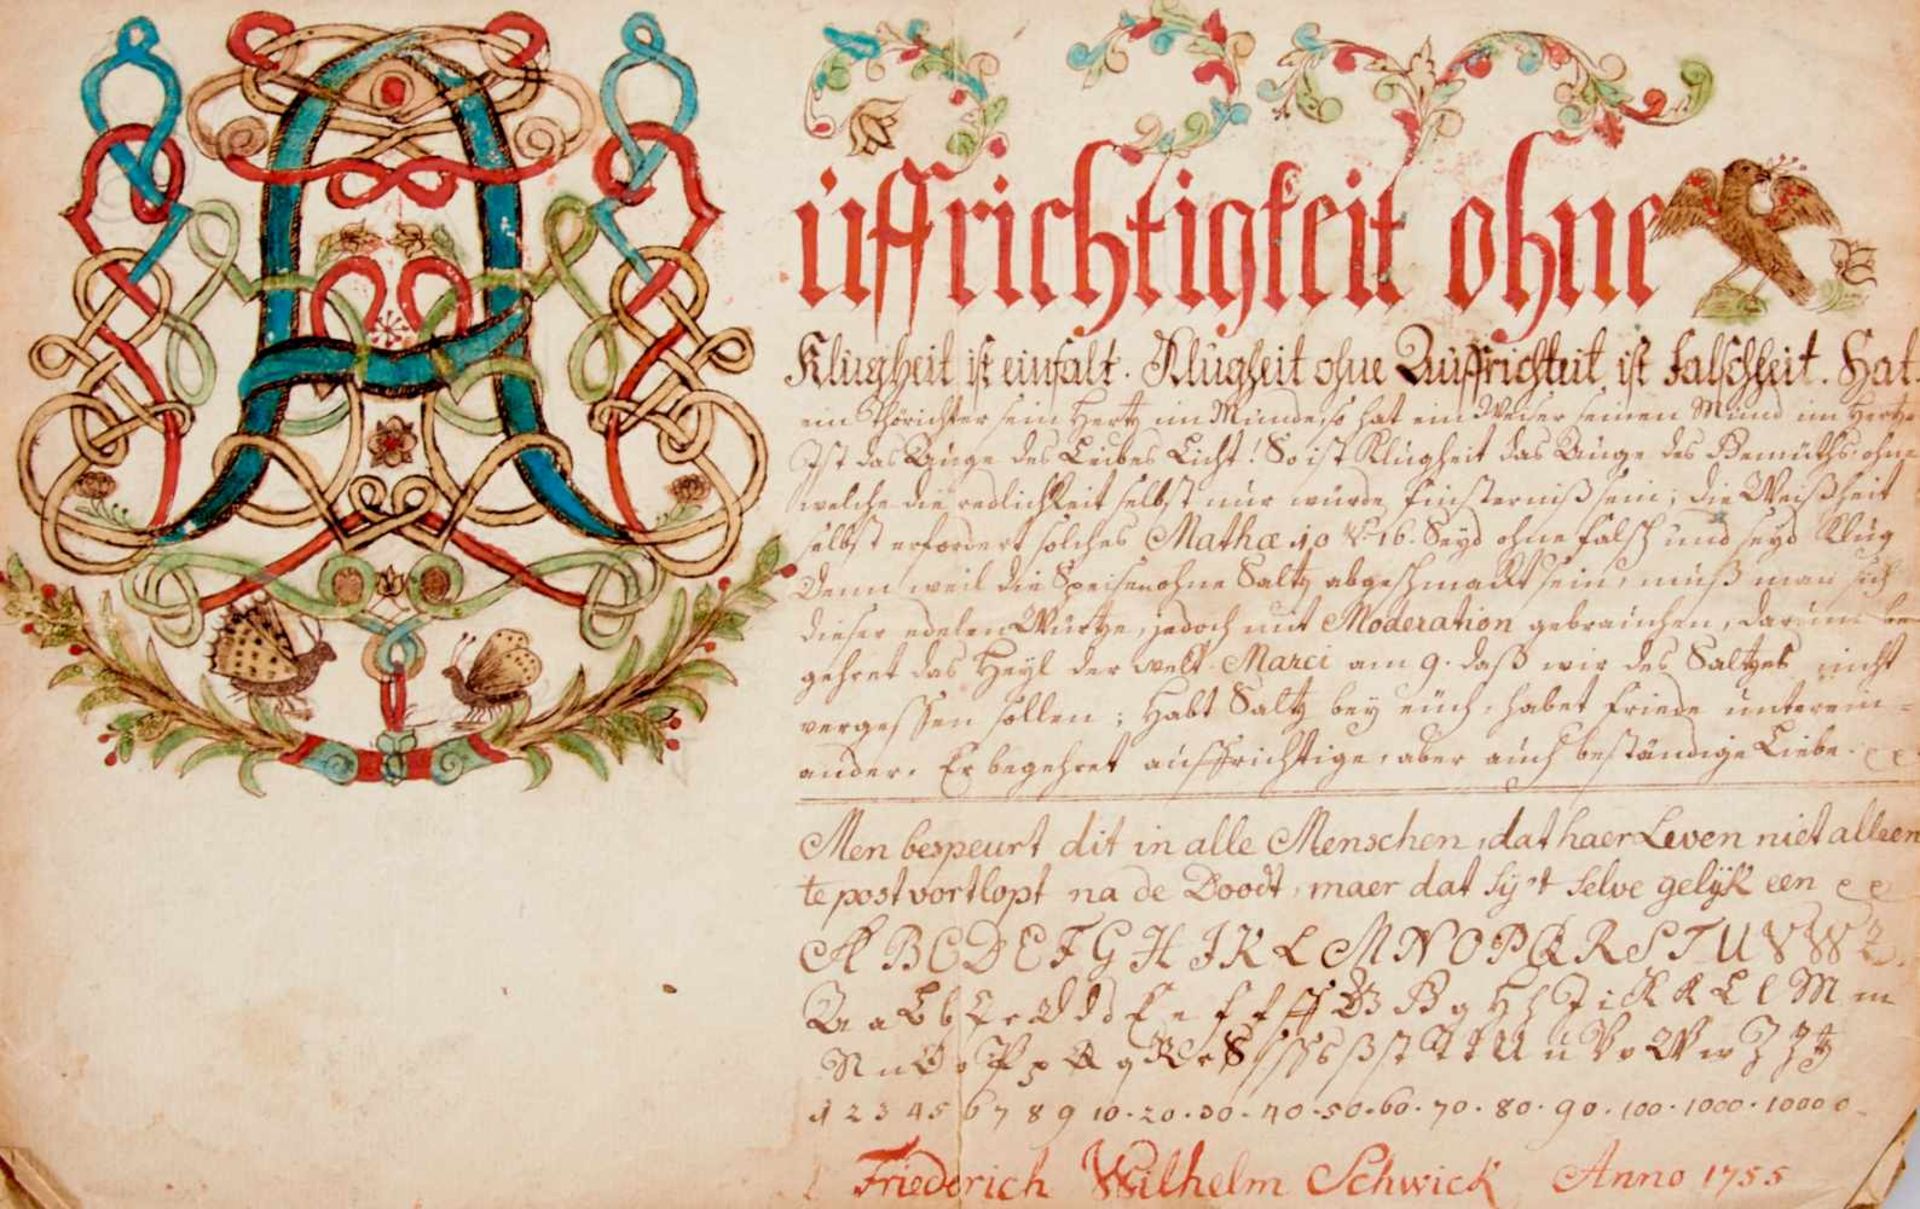 A
üffrichtigkeit ohne
Klugheit ist einfalt. Klugheit ohne Auffrichteit ist falschheit. Hat
ein Thörichter sein Hertz im Munde, so hat ein Weiser seinen Mund im Hertze
Ist das Auge des Leibes Licht! So ist Klugheit das Auge des Gemüths, ohne
welche die redlichkeit selbst nur würde finsterniß sein; die Weißheit
selbst erfordert solches Mathæ. 10 V. 16. Seyd ohne falsch und seyd klug
Denn weil die Speisen ohne Saltz abgeschmackt sein, muß man sich
dieser edelen Würtze, jedoch mit Moderation gebrauchen, darum be
gehret das Heyl der welt Marci am 9. daß wir des Saltzes nicht
vergessen sollen; Habt Saltz bey euch, habet friede unterein-
ander. Er begehret auffrichtige, aber auch beständige Liebe.
Men bespeurt dit in alle Menschen, dat haer Leven niet alleen
te post vortlopt na de Doodt, maer dat sy't selve gelÿk een
A B C D E F G H I K L M N O P Q R S T U V W Z
A a B b C c D d d E e f f ff G B g H h J i K k L l M m
N n O o P p Q q R r S s ss s ß st T t U u V v W w Z z tz
1 2 3 4 5 6 7 8 9 10 · 20 · 30 · 40 · 50 · 60 · 70 · 80 · 90 · 100 · 1000 · 10000
Friederich Wilhelm Schwick Anno 1755